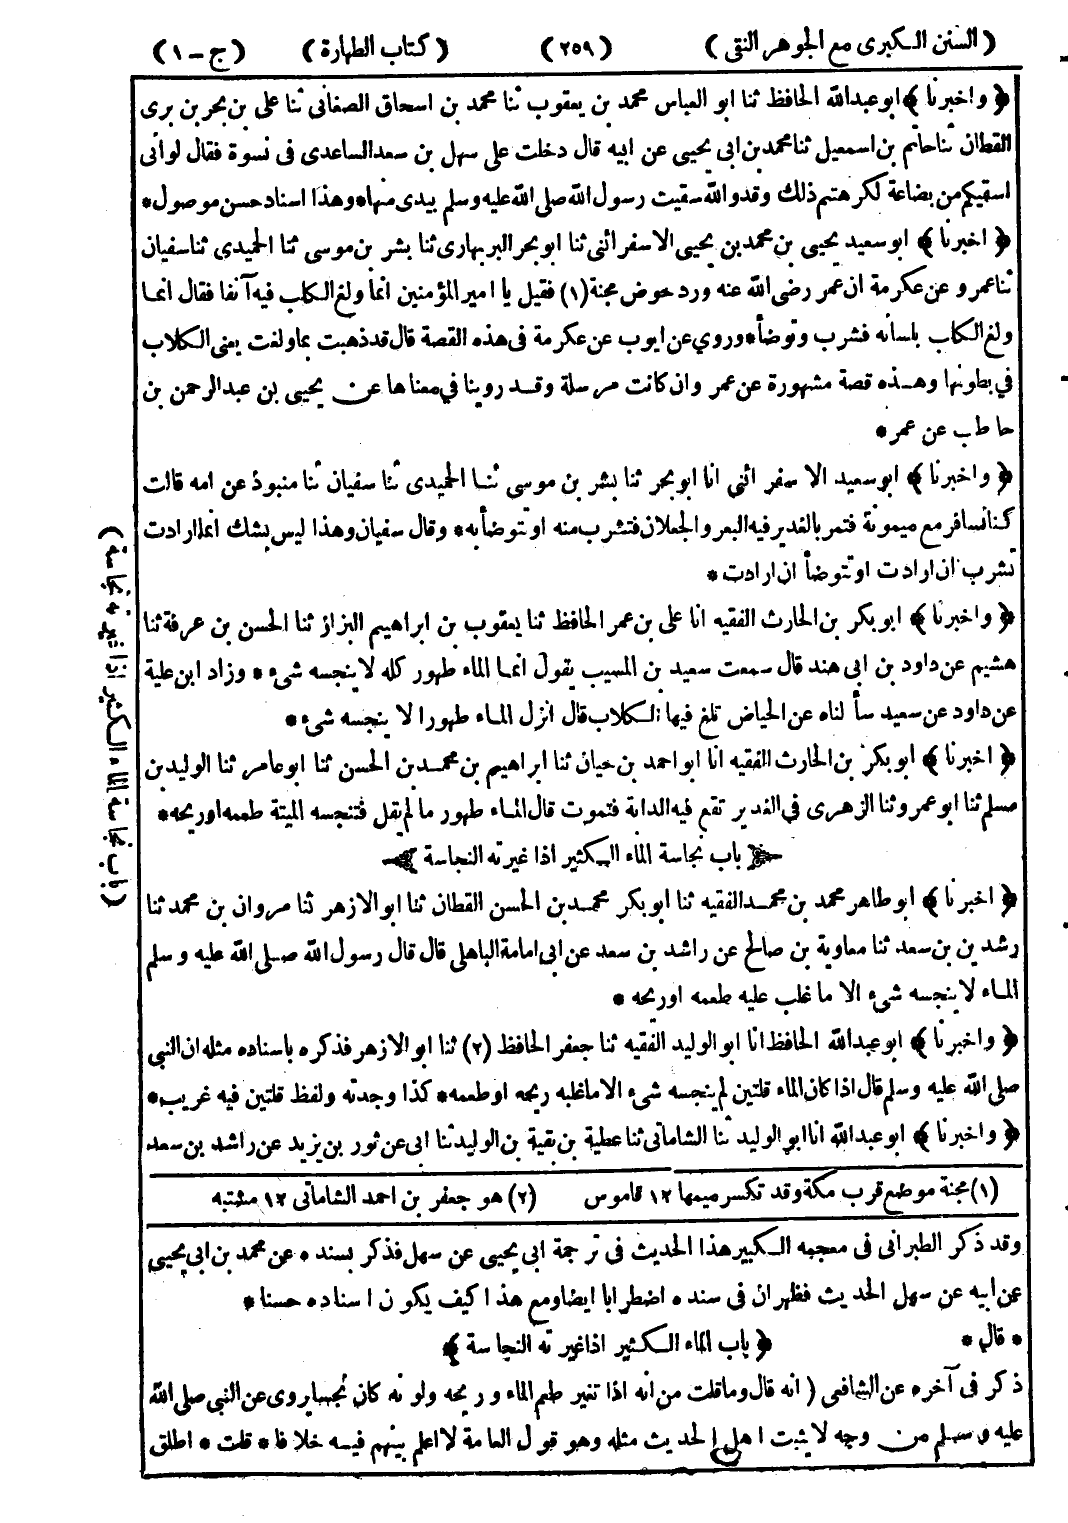 (السنن الكبرى مع الجوهر النقى) (٢٥٩) (كتاب الطهارة) (ج-١)
﴿ واخبرنا ﴾ ابو عبدالله الحافظ ثنا ابو العباس محمد بن يعقوب ثنا محمد بن اسحاق الصغانى ثنا على بن بحر بن برى
القطان ثنا حاتم بن اسمعيل ثنا محمد بن ابى يحيى عن ابيه قال دخلت على سهل بن سعد الساعدى فى نسوة فقال لو انى
اسقيكم من بضاعة لكرهتم ذلك وقد والله سقيت رسول الله صلى الله عليه وسلم بيدى منها* وهذا اسناد حسن موصول*
﴿ اخبرنا ﴾ ابو سعيد يحيى بن محمد بن يحيى الاسفرائنى ثنا ابو بحر البربهارى ثنا بشر بن موسى ثنا الحميدى ثنا سفيان
ثنا عمرو عن عكرمة ان عمر رضى الله عنه ورد حوض مجنة (١) فقيل يا امير المؤمنين انما ولغ الكلب فيه آنفا فقال انما
ولغ الكلب بلسانه فشرب وتوضأ* وروي عن ايوب عن عكرمة فى هذه القصة قال قد ذهبت بما ولغت يعنى الكلاب
في بطونها وهذه قصة مشهورة عن عمر وان كانت مرسلة وقد روينا في معناها عن يحيى بن عبد الرحمن بن
حاطب عن عمر *
﴿ واخبرنا ﴾ ابو سعيد الاسفرائنى انا ابو بحر ثنا بشر بن موسى ثنا الحميدى ثنا سفيان ثنا منبوذ عن امه قالت
كنا نسافر مع ميمونة فتمر بالغدير فيه البعر والجعلان فتشرب منه او تتوضأ به* وقال سفيان وهذا ليس بشك انما ارادت
تشرب ان ارادت او تتوضأ ان ارادت *
﴿ واخبرنا ﴾ ابو بكر بن الحارث الفقيه انا على بن عمر الحافظ ثنا يعقوب بن ابراهيم البزاز ثنا الحسن بن عرفة ثنا
هشيم عن داود بن ابى هند قال سمعت سعيد بن المسيب يقول انما الماء طهور كله لا ينجسه شىء * وزاد ابن علية
عن داود عن سعيد سألناه عن الحياض تلغ فيها الكلاب قال انزل الماء طهورا لا ينجسه شىء *
﴿ اخبرنا ﴾ ابو بكر بن الحارث الفقيه انا ابو احمد بن حيان ثنا ابراهيم بن محمد بن الحسن ثنا ابو عامر ثنا الوليد بن
مسلم ثنا ابو عمرو ثنا الزهرى في الغدير تقع فيه الدابة فتموت قال الماء طهور ما لم يقل فتنجسه الميتة طعمه او ريحه *
باب نجاسة الماء الكثير اذا غيرته النجاسة
﴿ اخبرنا ﴾ ابو طاهر محمد بن محمد الفقيه ثنا ابو بكر محمد بن الحسن القطان ثنا ابو الازهر ثنا مروان بن محمد ثنا
رشدين بن سعد ثنا معاوية بن صالح عن راشد بن سعد عن ابى امامة الباهلى قال قال رسول الله صلى الله عليه وسلم
الماء لا ينجسه شىء الا ما غلب عليه طعمه او ريحه *
﴿ واخبرنا ﴾ ابو عبدالله الحافظ انا ابو الوليد الفقيه ثنا جعفر الحافظ (٢) ثنا ابو الازهر فذكره باسناده مثله ان النبى
صلى الله عليه وسلم قال اذا كان الماء قلتين لم ينجسه شىء الا ما غلبه ريحه او طعمه* كذا وجدته ولفظ قلتين فيه غريب *
﴿ واخبرنا ﴾ ابو عبدالله انا ابو الوليد ثنا الشاماتى ثنا عطية بن بقية بن الوليد ثنا ابى عن ثور بن يزيد عن راشد بن سعد
(باب نجاسة الماء الكثير اذا غيرته نجاسة)
(١) مجنة موضع قرب مكة وقد تكسر ميمها ١٢ قاموس (٢) هو جعفر بن احمد الشاماتى ١٢ مشتبه
وقد ذكر الطبرانى فى معجمه الكبير هذا الحديث فى ترجمة ابى يحيى عن سهل فذكر بسنده عن محمد بن ابى يحيى
عن ابيه عن سهل الحديث فظهر ان فى سنده اضطرابا ايضا ومع هذا كيف يكون اسناده حسنا *
* قال * ﴿ باب الماء الكثير اذا غيرته النجاسة ﴾
ذكر فى آخره عن الشافعى (انه قال وما قلت من انه اذا تغير طعم الماء وريحه ولونه كان نجسا يروى عن النبى صلى الله
عليه وسلم من وجه لا يثبت اهل الحديث مثله وهو قول العامة لا اعلم بينهم فيه خلافا * قلت * اطلق